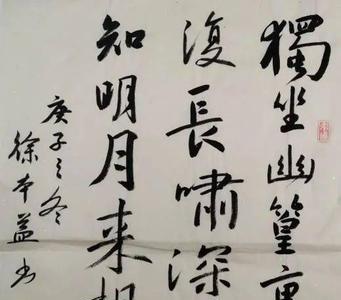 獨坐幽篁裏
復長嘯深
知明月来相
庚子之冬
徐本益书